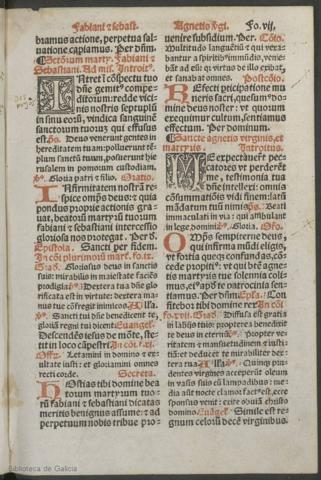 Fabiani ⁊ sebast.
Agnetis v̄gi. Fo. vij.
biamus actione, perpetua sal-
uatione capiamus. Per dn̄m.
Sctōrum marty. Fabiani ⁊
Sebastiani. Ad mis. Introitꝰ.
INtret ī cōspectu tuo
dn̄e gemitꝰ compe-
ditorum: redde vici-
nis nostris septuplū
in sinu eorū, vindica sanguinē
sanctorum tuorū qui effusus
est. p̄s. Deus venerunt gentes in
hereditatem tuam: polluerunt tē-
plum sanctū tuum, posuerunt hie
rusalem in pomorum custodiam.
Gloria patri ⁊ filio. Oratio.
INfirmitatem nostrā re
spice omp̄s deus: ⁊ quia
pondus propie actionis gra-
uat, beatorū martyrū tuorum
fabiani ⁊ sebastiani intercessio
gloriosa nos protegat. Per d.
Epistola. Sancti per fidem.
In cōi plurimorū mart. fo. ix.
Grad. Gloriosus deus in sanctis
suis: mirabilis in maiestate faciēs
prodigia. Dextera tua dn̄e glo
rificata est in virtute: dextera ma-
nus tue cōfregit inimicos. Alla.
Sancti tui dn̄e benedicent te,
gloriā regni tui dicent. Euangel.
Descendēs iesus de mōte, ste-
tit in loco cāpestri. In cōi.
Offr. Letamini in domino ⁊ ex
ultate iusti: ⁊ gloriamini omnes
recti corde. Secreta.
HOstias tibi domine bea
torum martyrum tuo-
rū fabiani ⁊ sebastiani dicatas
meritis benignus assume: ⁊ ad
perpetuum nobis tribue pro-
uenire subsidium. Per. Cōīo.
Multitudo languentiū ⁊ qui vexa-
bantur a spiritibꝰ immūdis, venie-
bāt ad eū: q̄ virtus de illo exibat,
et sanabat omnes. Postcōio.
REfecti participatione mu
neris sacri, quesumꝰ do-
mine deus noster: vt quorum
exequimur cultum, sentiamus
effectum. Per dominum.
Sancte agnetis virginis, et
martyris. Introitus.
ME expectauerūt pec-
catores vt perderēt
me, testimonia tua
dn̄e intellexi: omnis
cōsummatiōis vidi finem: latū
mādatum tuū nimis. p̄s. Beati
immaculati in via: qui ambulant
in lege domini. Gloria. Oro.
OMp̄s sempiterne deus,
qui infirma mūdi eligis,
vt fortia queq̄ confundas, cō-
cede propitiꝰ: vt qui btē agne
tis martyris tue solemnia coli-
mus, eiꝰ apd̄ te patrocinia sen-
tiamus. Per dn̄m. Epl̄a. Con
fitebor tibi domine rex. In cōi
fo. xvij. Grad. Diffusa est gratia
in labijs tuis: propterea benedixit
te deus in eternū. Propter veri-
tatem ⁊ mansuetudinem ⁊ iusti-
tiam: et deducet te mirabiliter dex-
tera tua. Alla. Quinq̄ pru-
dentes virgines acceperūt oleum
in vasis suis cū lampadibus: me-
dia aūt nocte clamor factꝰ est, ecce
sponsus venit: exite obuiā christo
domino. Euāgel. Simile est re-
gnum celorū decē virginibus.
Biblioteca de Galicia